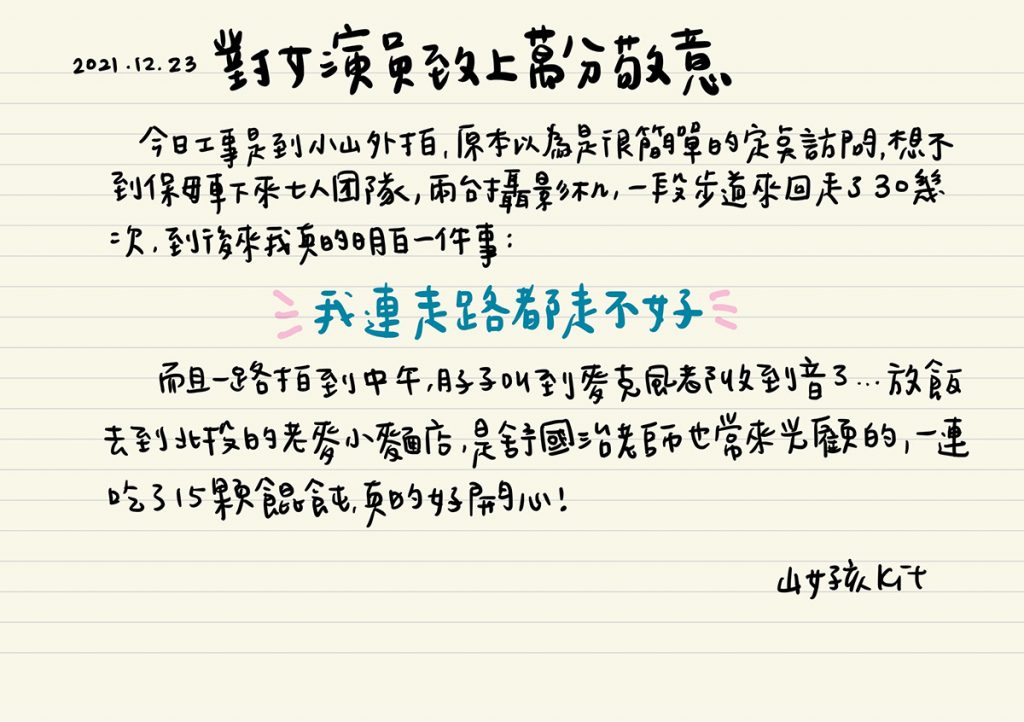 2021.12.23 對女演員致上萬分敬意
今日工事是到小山外拍,原本以為是很簡單的定點訪問,想不
到保母車下來七人团隊,兩台攝影机,一段步道來回走了30幾
次,到後來我真的明白一件事:
我連走路都走不好
而且一路拍到中午,肚子叫到麥克風都收到音了...放飯
去到北投的老麥小麵店,是舒國治老師也常來光顧的,一連
吃了15顆餛飩,真的好開心!
山女孩Kit